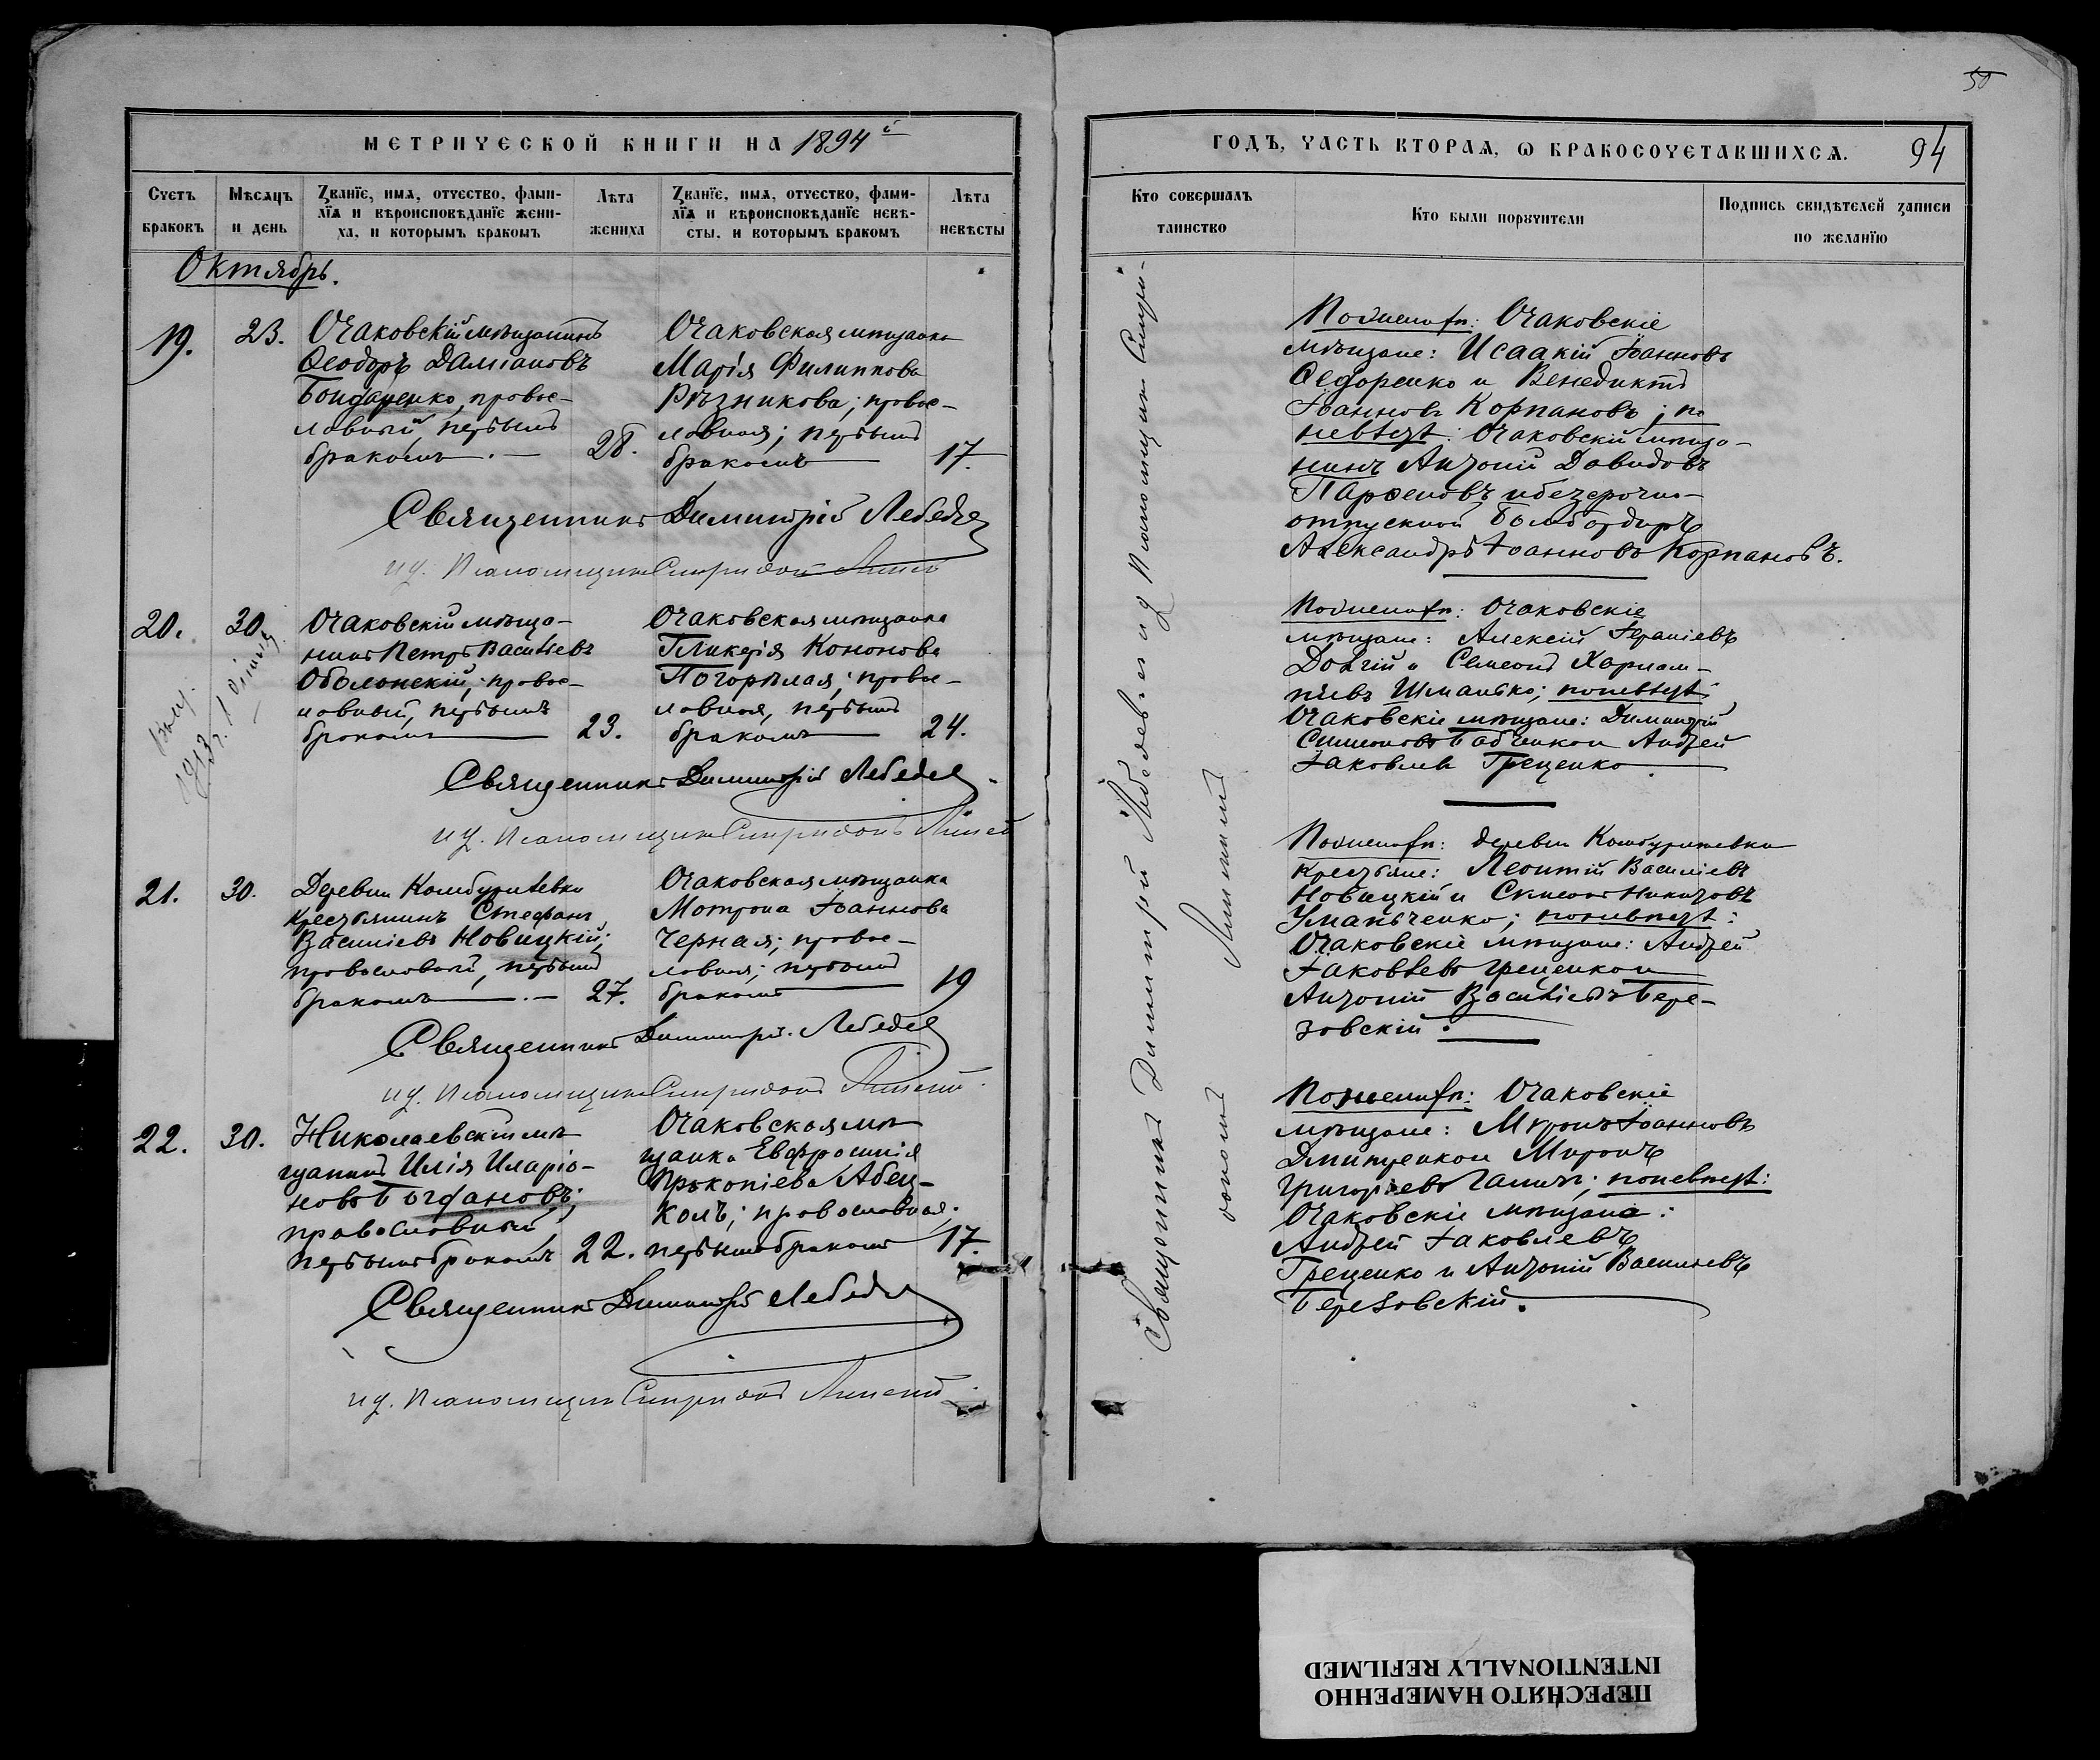 МЕТРИЧЕСКОЙ КНИГИ НА 1894й
Счетъ браковъ
Мѣсяцъ и день
Званїе, имя, отчество, фами-
лїя и вѣроисповѣданїе жени-
ха, и которымъ бракомъ
Лѣта жениха
Званїе, имя, отчество, фами-
лїя и вѣроисповѣданїе невѣ-
сты, и которымъ бракомъ
Лѣта невѣсты
Октябрь.
19.
23.
Очаковскій мѣщанинъ
Ѳеодоръ Даміановъ
Бондаренко, правос-
лавный, первымъ
бракомъ. —
28.
Очаковская мѣщанка
Марія Филиппова
Рѣзникова; правос-
лавная; первымъ
бракомъ
17.
Священникъ Димитрій Лебедев
и д. Псаломщика Спиридонъ
20.
30.
Очаковскій мѣща-
нинъ Петръ Васильевъ
Оболонскій, правос-
лавный, первымъ
бракомъ
23.
Очаковская мѣщанка
Гликерія Кононова
Погорѣлая; правос-
лавная, первымъ
бракомъ
24.
1913 г.
Священникъ Димитрій Лебедев
и д. Псаломщика Спиридонъ
21.
30.
Деревни Камбурліевки
крестьянинъ Стефанъ
Василіевъ Новицкій;
православный, первымъ
бракомъ. —
27.
Очаковская мѣщанка
Матрона Іоаннова
Черная; правос-
лавная; первымъ
бракомъ
19
Священникъ Димитрій Лебедев
и д. Псаломщика Спиридонъ
22.
30.
Николаевскій мѣ-
щанинъ Илія Иларіо-
новъ Богдановъ;
православный,
первымъ бракомъ
22.
Очаковская мѣ-
щанка Евфросинія
Прокопіева
православная.
первымъ бракомъ
17.
Священникъ Димитрій Лебедев
и д. Псаломщика Спиридонъ
50
ГОДЪ, ЧАСТЬ ВТОРАЯ, Ѡ БРАКОСОЧЕТАВШИХСЯ.
94
Кто совершалъ таинство
Кто были поручители
Подпись свидѣтелей записи по желанїю
Священникъ Димитрій Лебедевъ и и д Псаломщика Спири-
донъ
По жениху: Очаковскіе
мѣщане: Исаакій Іоанновъ
Ѳедоренко и Венедиктъ
Іоанновъ Корпановъ; по
невѣстѣ: Очаковскій мѣща-
нинъ Антоній Давидовъ
Парѳеновъ и безсрочно-
отпускной Бомбардиръ
Александръ Іоанновъ Корпановъ.
По жениху: Очаковскіе
мѣщане: Алексій
Довгій и Симеонъ Харлам-
піевъ Шманько; по невѣстѣ:
Очаковскіе мѣщане: Димитрій
Симеоновъ Бабченко и Андрей
Іаковлевъ Греценко.
По жениху: деревни Камбурліевки
крестьяне: Леонтій Василіевъ
Новицкій и Симеонъ
Уманьченко; по невѣстѣ:
Очаковскіе мѣщане: Андрей
Іаковлевъ Греценко и
Антоній Василіевъ Бере-
зовскій.
По жениху: Очаковскіе
мѣщане: Миронъ Іоанновъ
Дмитренко и Миронъ
Григоріевъ по невѣстѣ:
Очаковскіе мѣщане:
Андрей Іаковлевъ
Греценко и Антоній Василіевъ
Березовскій.
ПЕРЕСНЯТО НАМЕРЕННО
INTENTIONALLY REFILMED